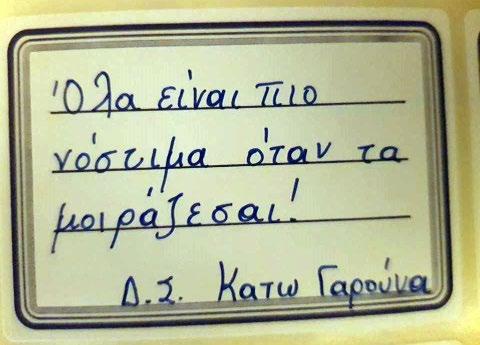 Όλα είναι πιο
νόστιμα όταν τα
μοιράζεσαι!
Δ.Σ. Κατω Γαρούνα